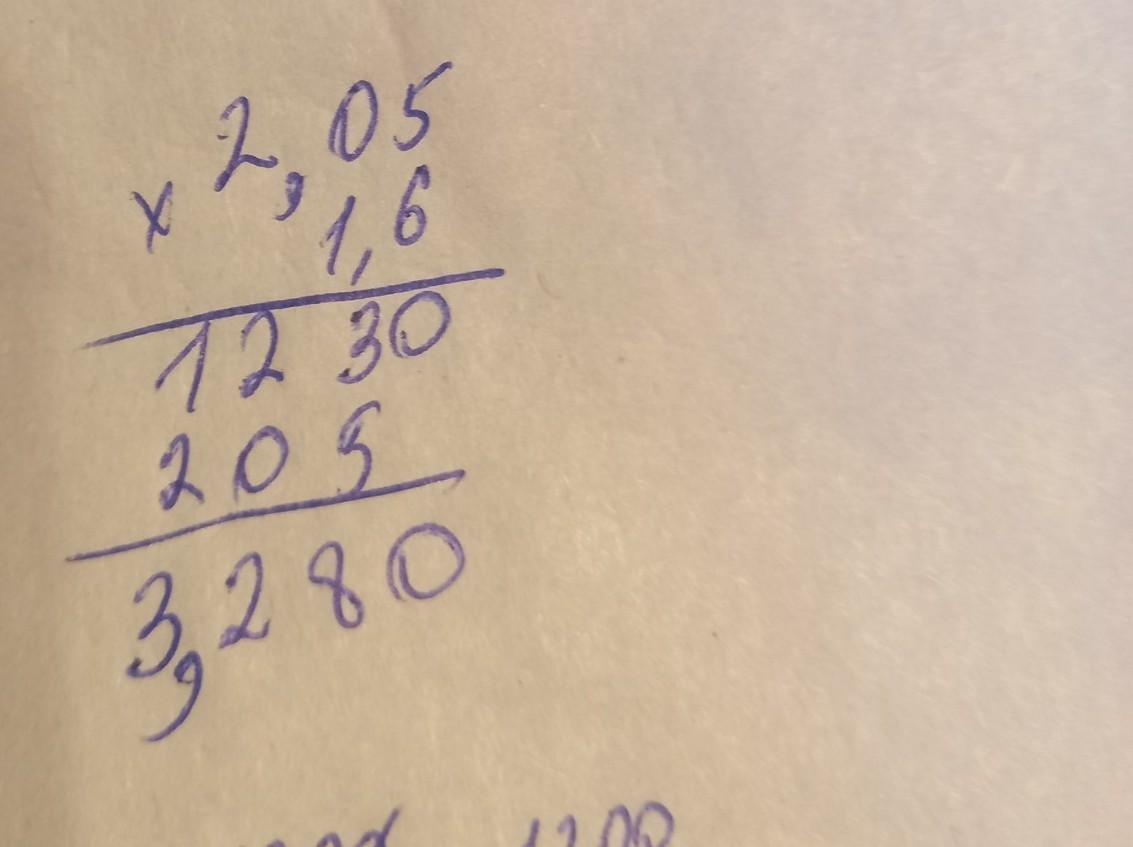 2,05
x 1,6
1230
205
3,280